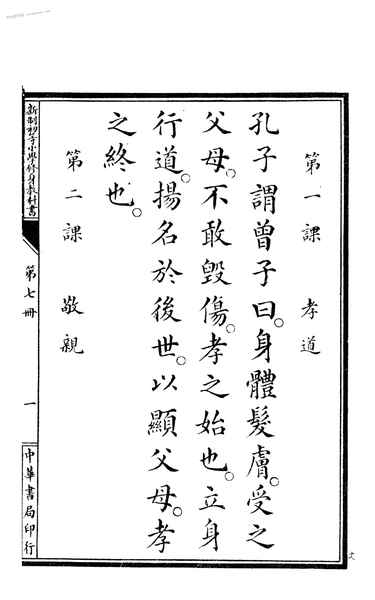 第一課 孝道
孔子謂曾子曰。身體髮膚。受之
父母。不敢毀傷。孝之始也。立身
行道。揚名於後世。以顯父母。孝
之終也。
第二課 敬親
新制初等小學修身教科書
第七冊
一
中華書局印行